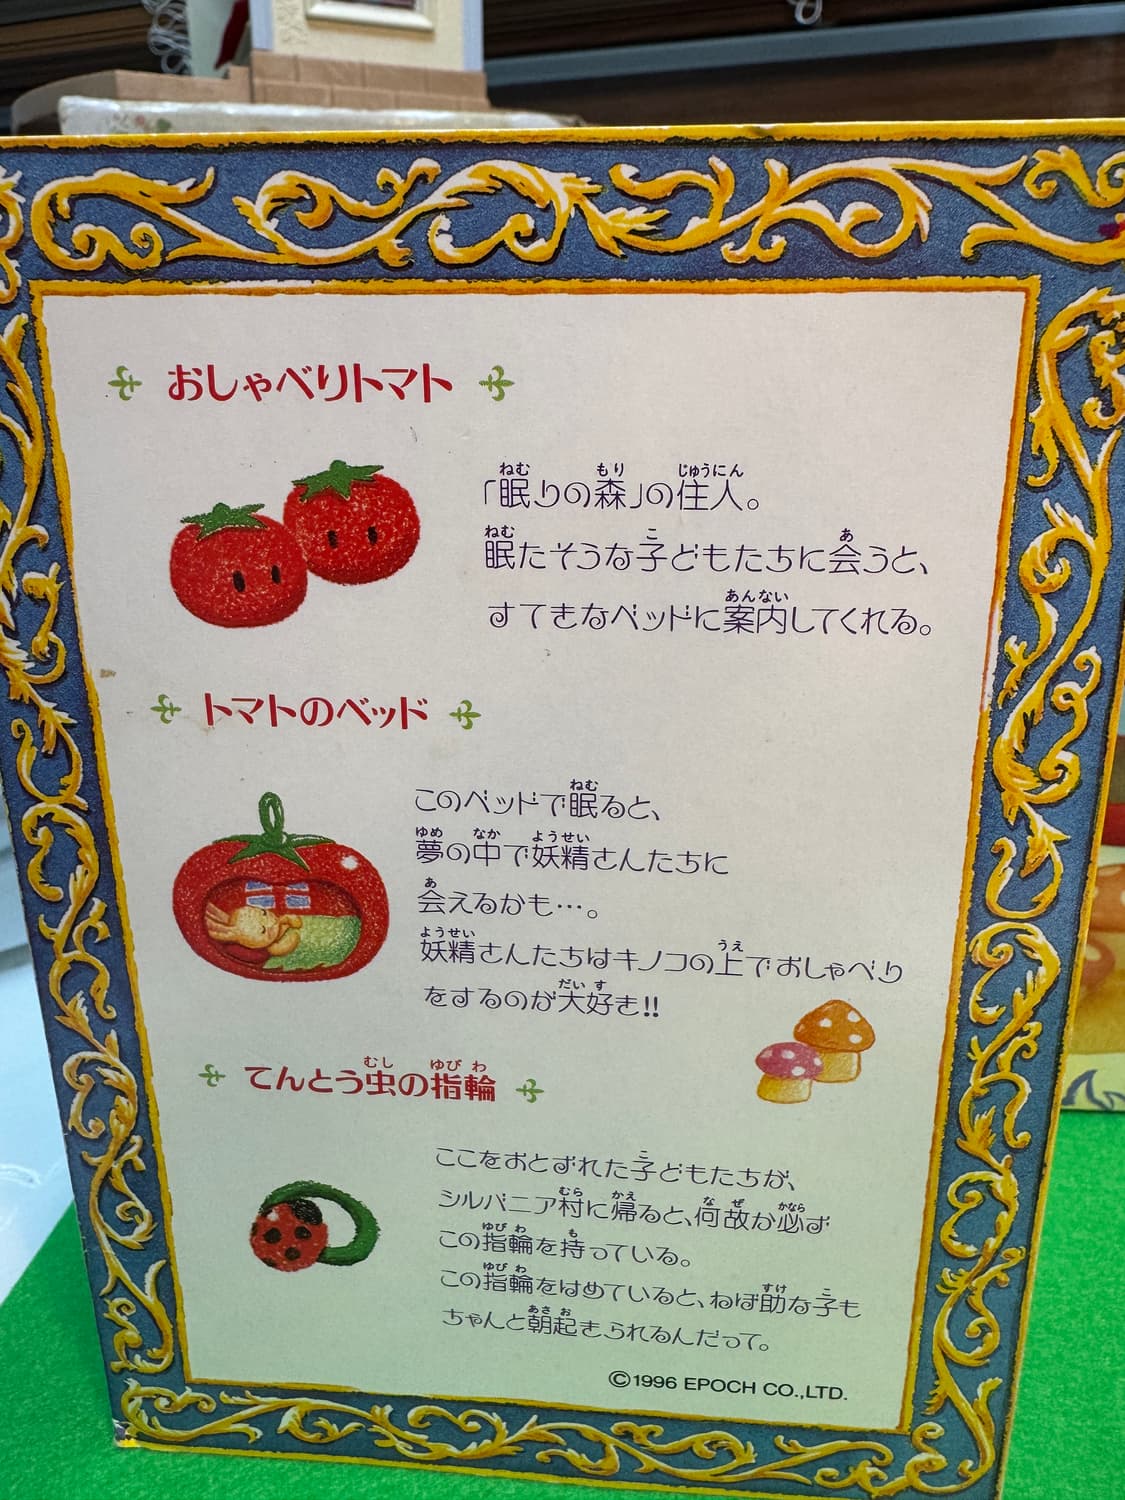 おしゃべりトマト
「眠りの森」の住人。
眠たそうな子どもたちに会うと、
すてきなベッドに案内してくれる。
トマトのベッド
このベッドで眠ると、
夢の中で妖精さんたちに
会えるかも…。
妖精さんたちはキノコの上でおしゃべり
をするのが大好き!!
てんとう虫の指輪
ここをおとずれた子どもたちが、
シルバニア村に帰ると、何故か必ず
この指輪を持っている。
この指輪をはめていると、ねぼ助な子も
ちゃんと朝起きられるんだって。
©1996 EPOCH CO.,LTD.